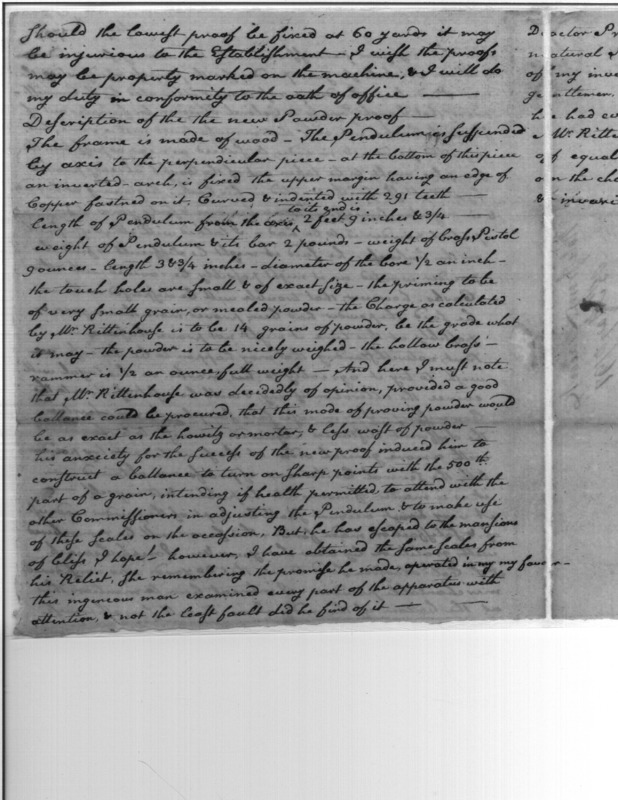 Should the lowest proof be fixed at 60 yards it may
be injurious to the Establishment - I wish the proofs
may be property marked on the machine, & I will do
my duty in conformity to the oath of office —
Description of the the new Powder proof —
The frame is made of wood - The Pendulum is suspended
by axis to the perpendicular piece - at the bottom of this piece
an inverted arch, is fixed the upper margin having an edge of
Copper fastned on it, Curved & indented with 291 teeth
length of Pendulum from the axis ^ to its end is 2 feet 9 inches & 3/4 —
weight of Pendulum & its bar 2 pounds - weight of brass Pistol
9 ounces - length 3 & 3/4 inches - diameter of the bore 1/2 an inch -
the touch holes are small & of exact size - the priming to be
of very small grain, or mealed powder - the Charge as calculated
by Mr. Rittenhouse is to be 14 grains of powder, be the grade what
it may - the powder is to be nicely weighed - the hollow brass -
rammer is 1/2 an ounce, full weight — And here I must note
that Mr. Rittenhouse was decidedly of opinion, provided a good
ballance could be procured, that this mode of proving powder would
be as exact as the howitz or mortar, & less wast of powder —
his anxciety for the success of the new proof induced him to
construct a ballance to turn on sharp points with the 500th.
part of a grain, intending if health permitted, to attend with the
other Commissioners in adjusting the Pendulum & to make use
of these scales on the occassion, But, he has escaped to the mansions
of bliss I hope! - however, I have obtained the same scales from
his Relict, She remembering the promise he made, operated in my my favor -
this ingenious man examined every part of the apparatus with
attention, & not the least fault did he find of it —
Doactor
natural
of my
gentlemen.
he had
Mr.
of equal
on the
&